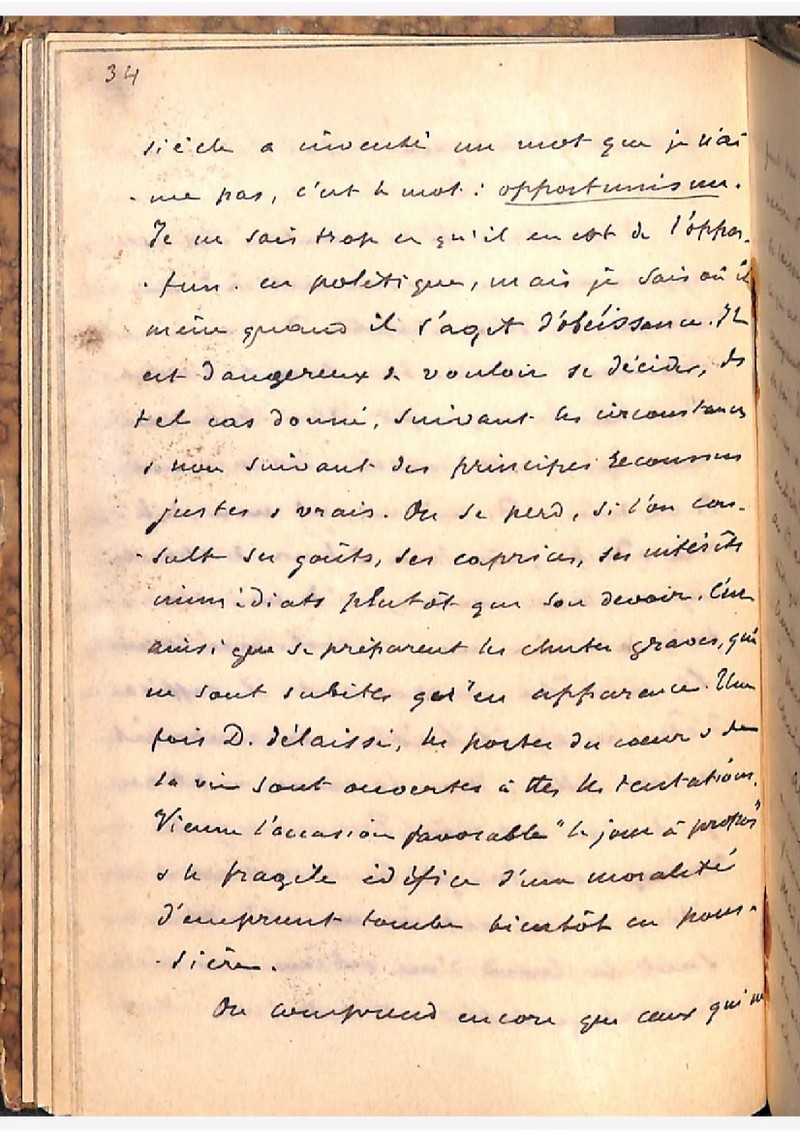 34
siècle a inventé un mot que je n'ai
-me pas, c'est le mot : opportunisme.
Je ne sais trop ce qu'il en est de l'oppor-
-tun. en politique, mais je sais où il
mène quand il s'agit d'obéissance. Il
est dangereux de vouloir se décider, ds
tel cas donné, suivant les circonstances
& non suivant des principes reconnus
justes & vrais. On se perd, si l'on con-
-sulte ses goûts, ses caprices, ses intérêts
immédiats plutôt que son devoir. C'est
ainsi que se préparent les chutes graves, qui
ne sont subites qu'en apparence. Une
fois D. délaissé, les portes du coeur & de
la vie sont ouvertes à ttes les tentations.
Vienne l'occasion favorable "le jour à propos"
& le fragile édifice d'une moralité
d'emprunt tombe bientôt en pous-
-sière.
On comprend encore que ceux qui ne